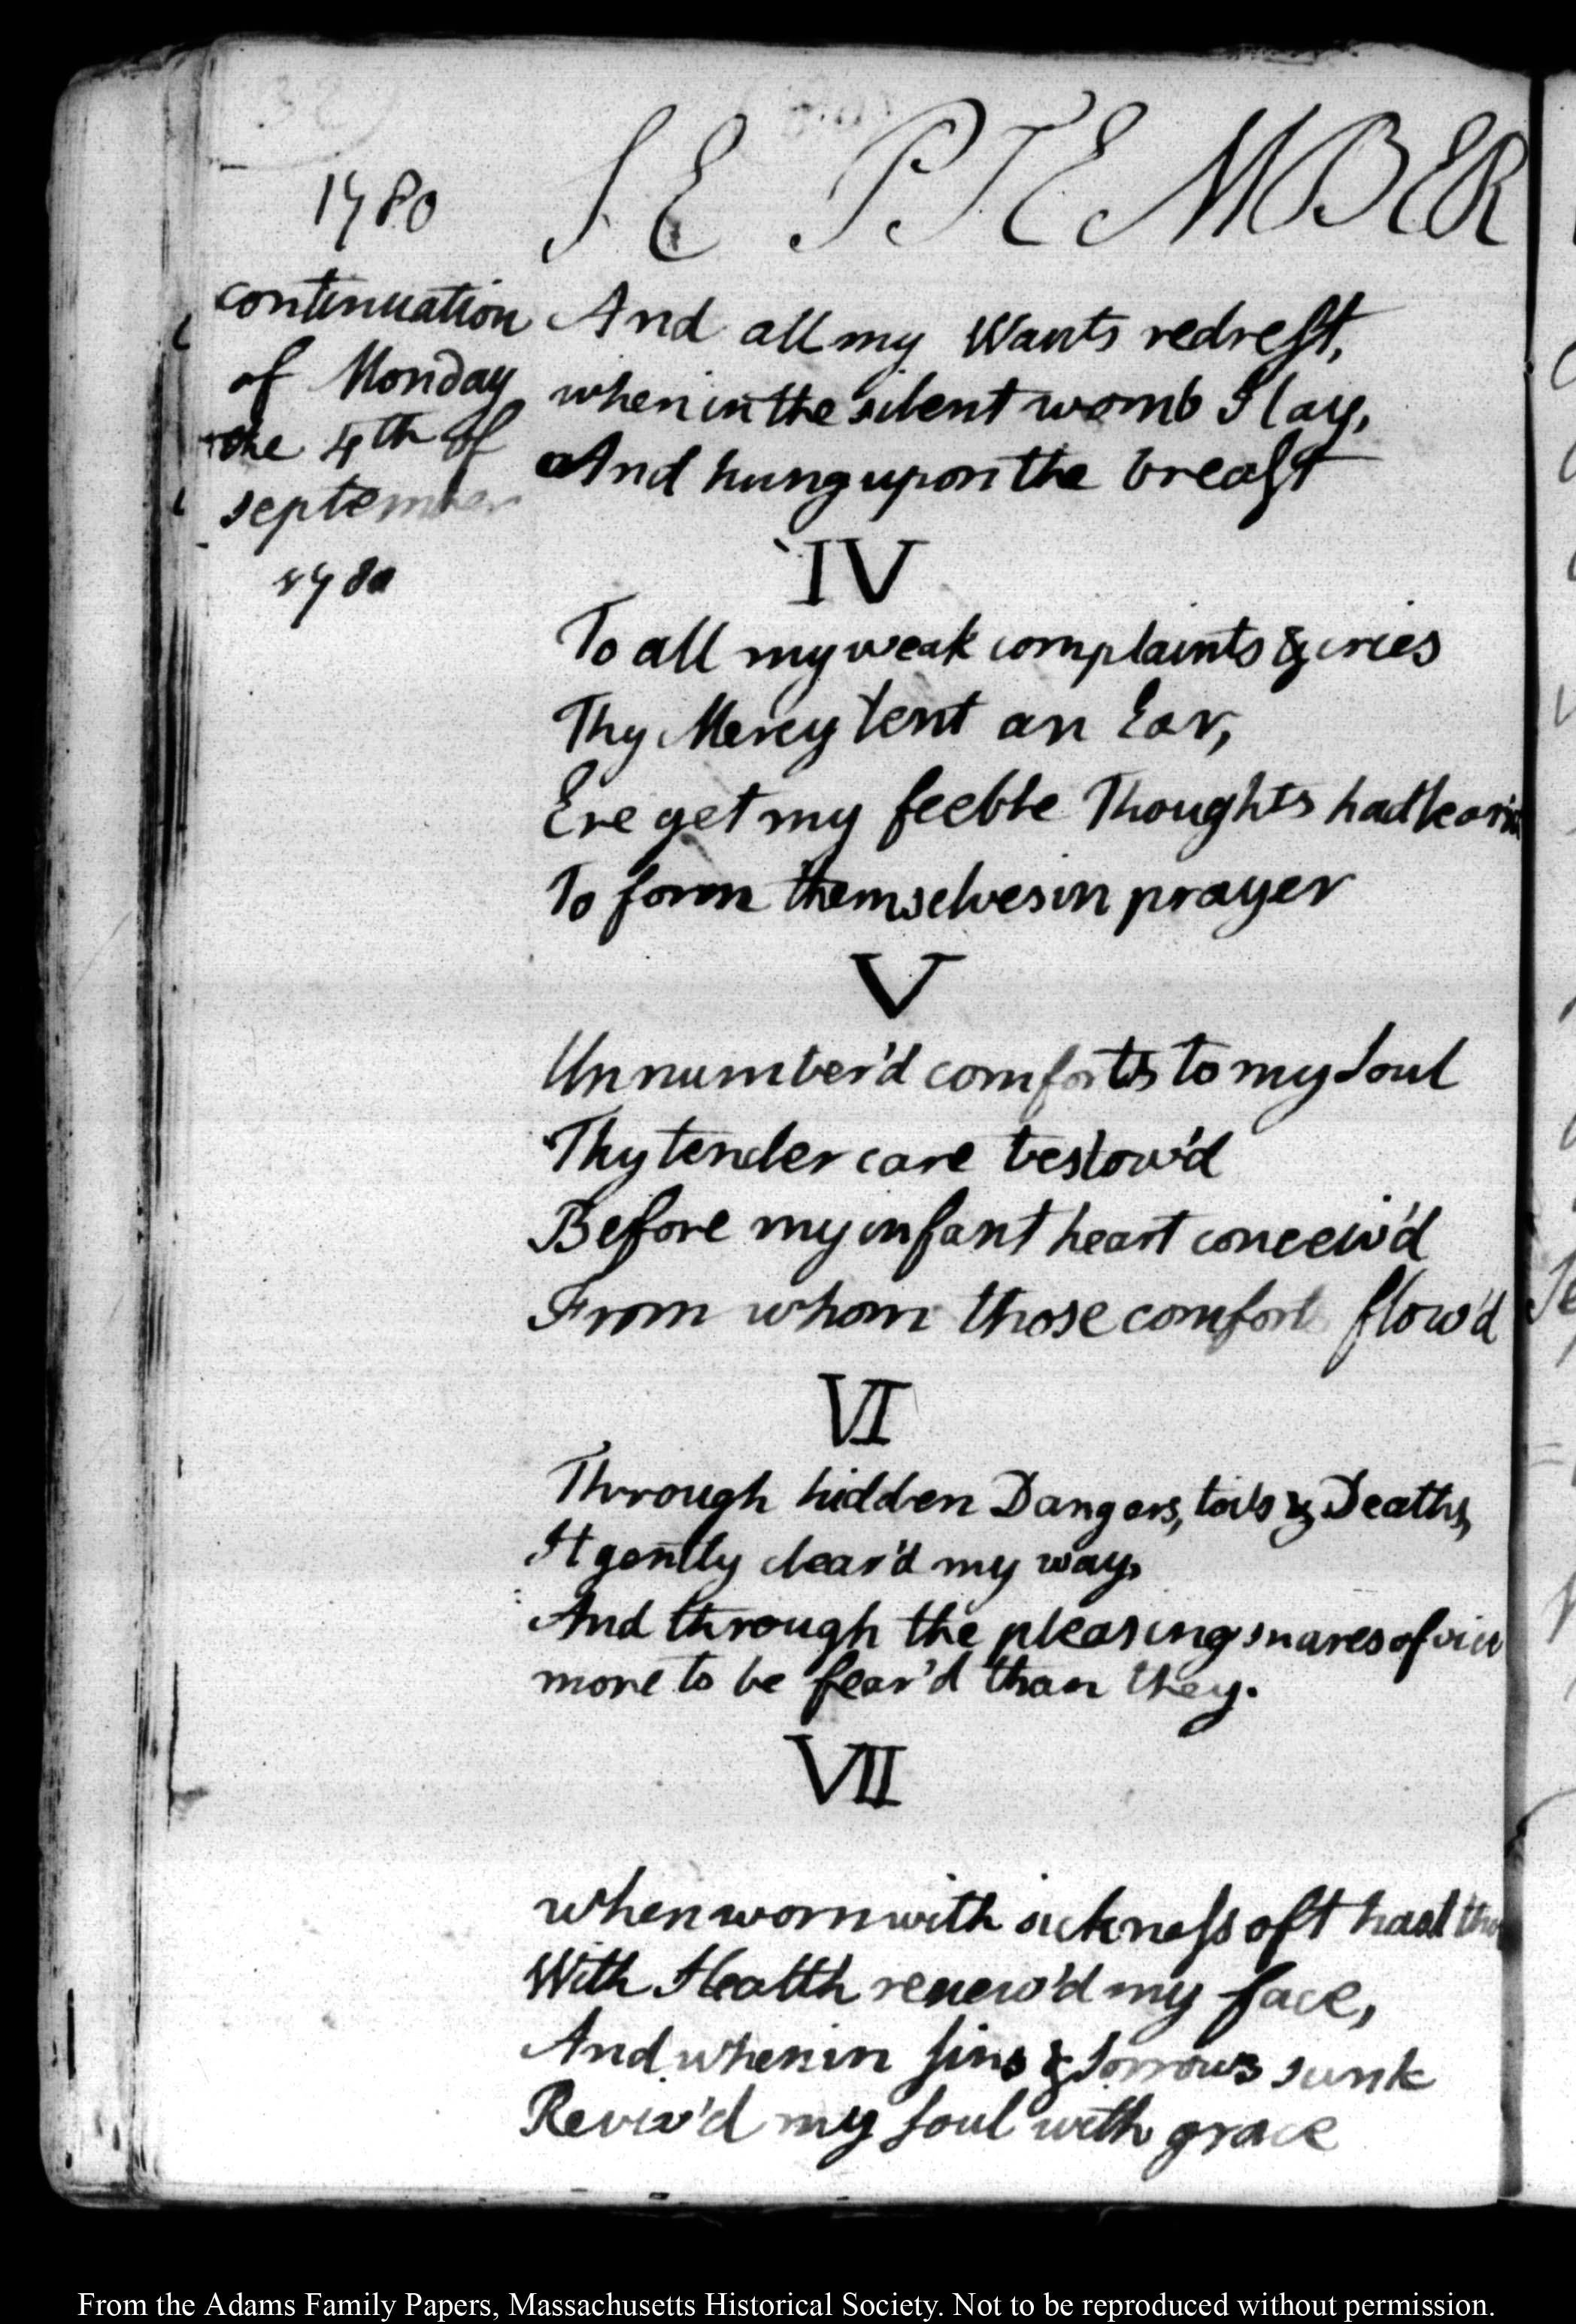 1780
SEPTEMBER
continuation
of Monday
the 4th of
september
1780
And all my Wants redresst,
when in the silent womb I lay,
And hung upon the breast
IV
To all my weak complaints & cries
Thy Mercy lent an Ear,
Ere yet my feeble Thoughts had learn
To form themselves in prayer
V
Unnumber'd comforts to my Soul
Thy tender care bestow'd
Before my infant heart conceiv'd
From whom those comforts flow'd
VI
Through hidden Dangers, toils & Deaths,
It gently clear'd my way,
And through the pleasing snares of vice
more to be fear'd than they.
VII
when worn with sickness oft hast thou
With Health renew'd my face,
And when in sins & sorrows sunk
Reviv'd my soul with grace
From the Adams Family Papers, Massachusetts Historical Society. Not to be reproduced without permission.